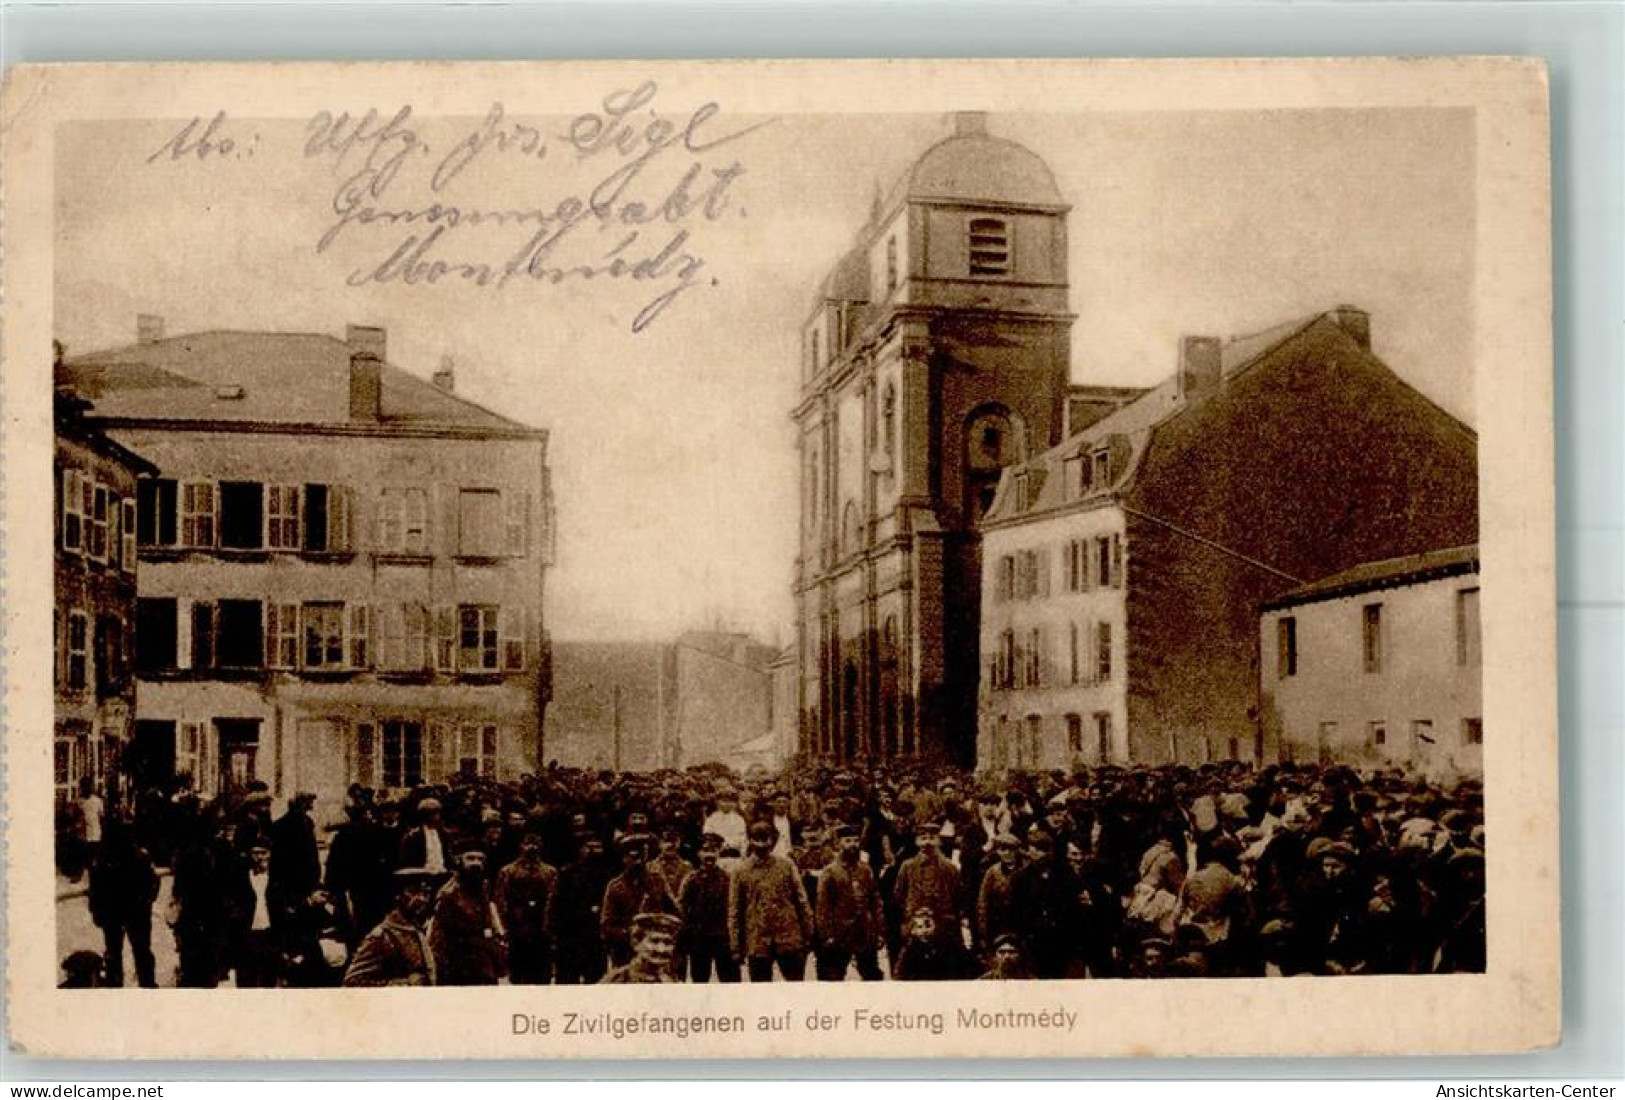 Abs.: Uffz. Jos. Sigl
Genesungsabt.
Montmédy.
Die Zivilgefangenen auf der Festung Montmédy
oldthing.de
Ansichtskarten-Center